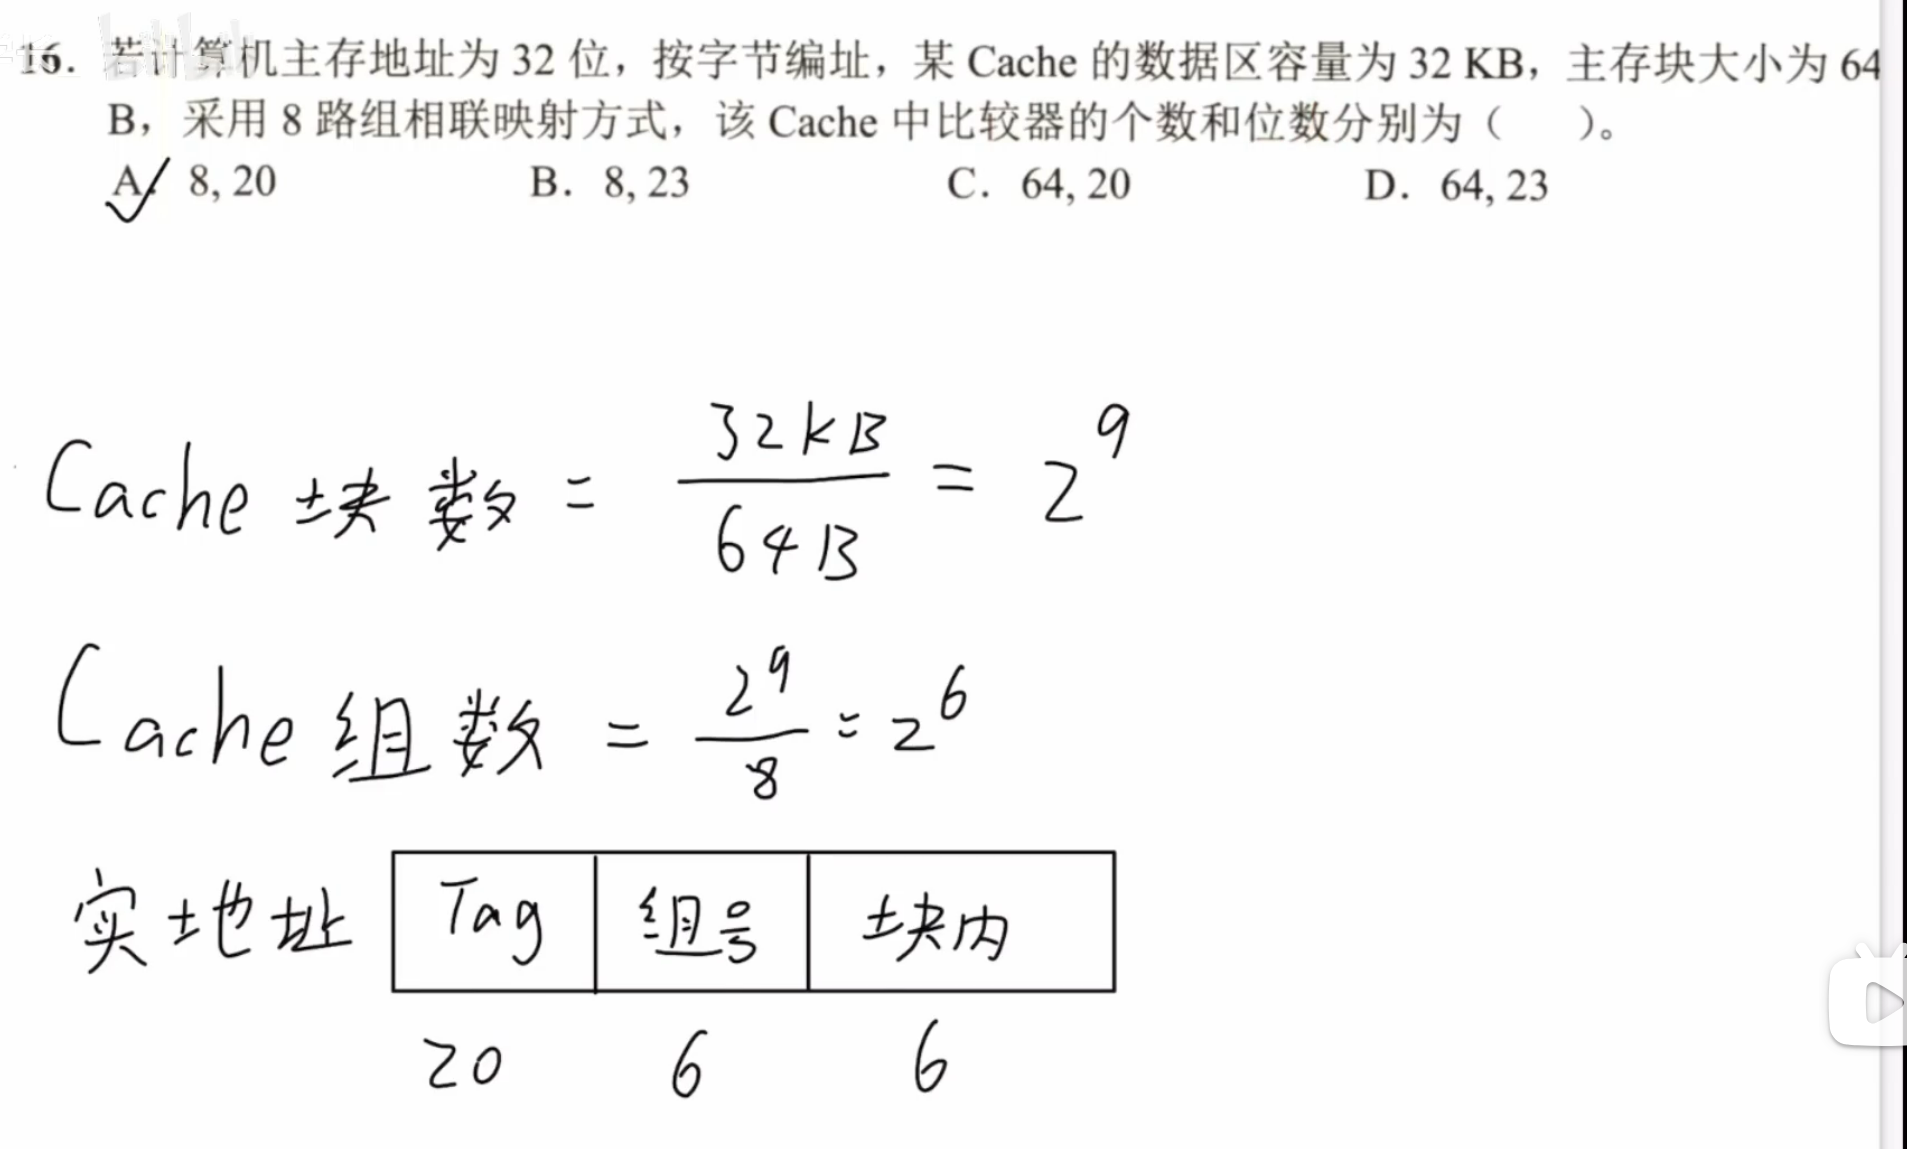 16. 若计算机主存地址为 32 位，按字节编址，某 Cache 的数据区容量为 32 KB，主存块大小为 64
B，采用 8 路组相联映射方式，该 Cache 中比较器的个数和位数分别为（ ）。
A. 8, 20 B. 8, 23 C. 64, 20 D. 64, 23
Cache 块数 = 32KB / 64B = 2^9
Cache 组数 = 2^9 / 8 = 2^6
实地址 Tag 组号 块内
20 6 6